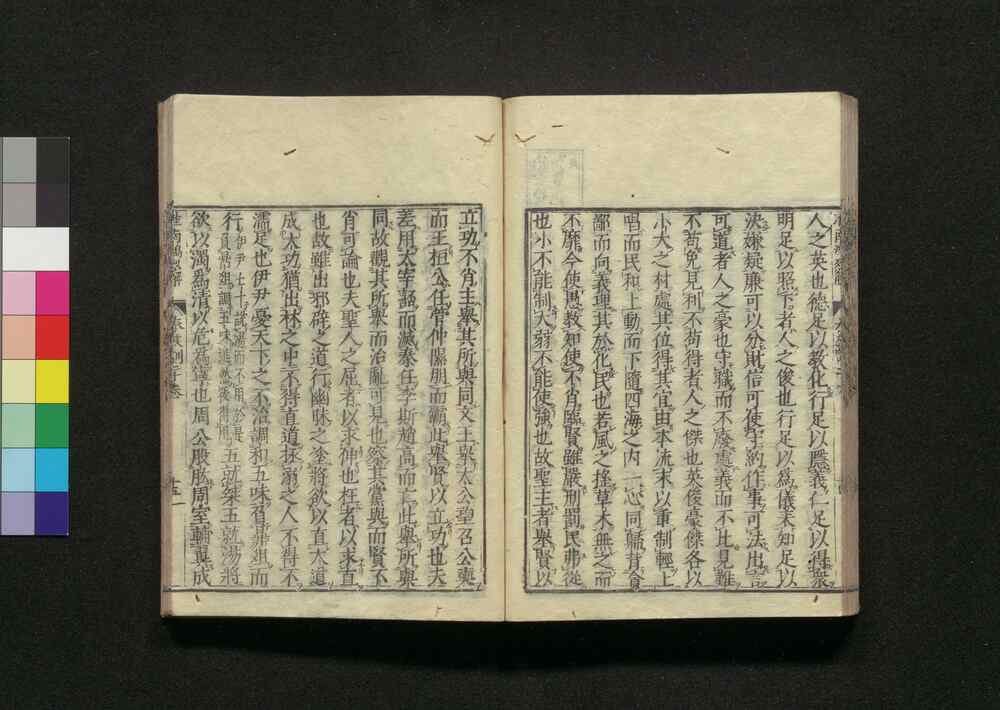 人之英也德足以教化行足以隱義仁足以得衆
明足以照下者人之俊也行足以爲儀表知足以
決嫌疑廉可以分財信可使守約作事可法出言
可道者人之豪也守職而不廢處義而不比見難
不苟免見利不苟得者人之傑也英俊豪傑各以
小大之材處其位得其宜由本流末以重制輕上
唱而民和上動而下隨四海之内一心同歸背貪
鄙而向義理其於化民也若風之搖草木無之而
不靡今使愚教知使不肖臨賢雖嚴刑罰民弗從
也小不能制大弱不能使強也故聖主者舉賢以
立功不肖主舉其所與同文王舉太公望召公奭
而王桓公任管仲隰朋而霸此舉賢以立功也夫
差用太宰嚭而滅秦任李斯趙高而亡此舉所與
同故觀其所舉而治亂可見也察其黨與而賢不
肖可論也夫聖人之屈者以求伸也枉者以求直
也故雖出邪辟之道行幽昧之塗將欲以直大道
成大功猶出林之中不得直道拯溺之人不得不
濡足也伊尹憂天下之不治調和五味負鼎俎而
行五就桀五就湯將
欲以濁爲清以危爲寧也周公股肱周室輔翼成